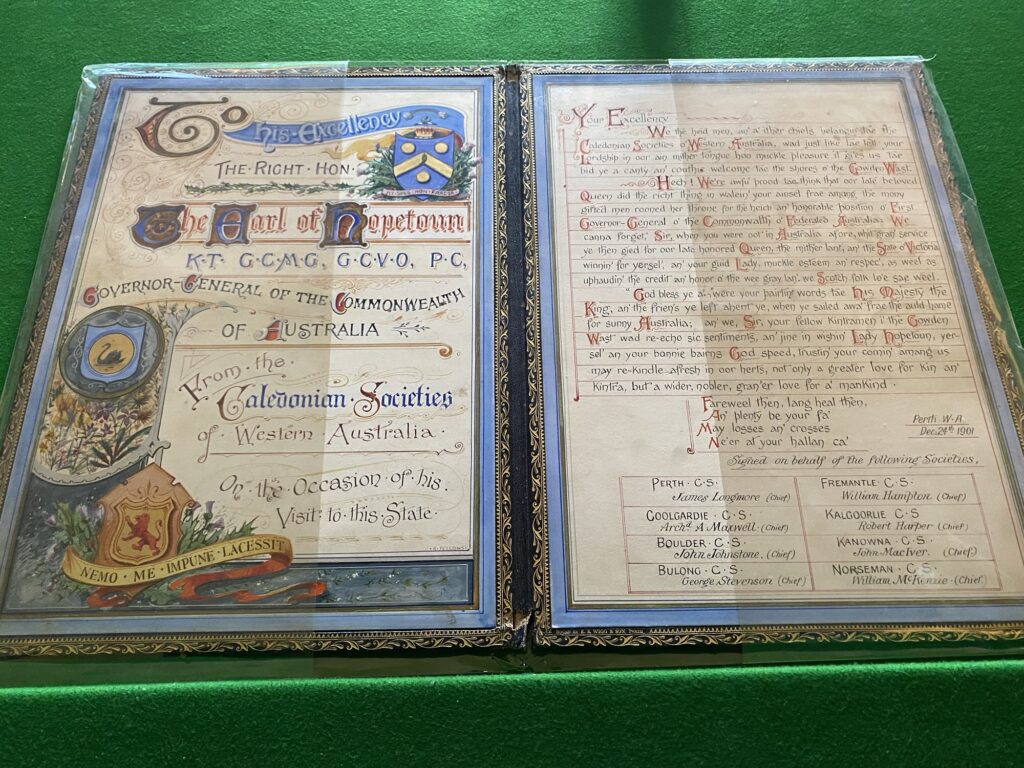 To
his · Excellency
The · Right · Hon ·
The Earl of Hopetoun
K·T· G·C·M·G, G·C·V·O, P·C,
Governor-General of the Commonwealth
of Australia
From · the ·
Caledonian · Societies
of · Western · Australia ·
On · the · Occasion · of · his ·
Visit · to · this · State ·
NEMO · ME · IMPUNE · LACESSIT
Your Excellency
We the heid men, an' a' ither chiels belangin' tae the
Caledonian Societies o' Western Australia, wad just like tae tell your
Lordship in oor ain mither tongue hoo muckle pleasure it gies us tae
bid ye a canty an' couthie welcome tae the shores o' the Gowden Wast.
Hech! We're awfu' prood tae think that oor late beloved
Queen did the richt thing in walein' your ainsel' frae amang the mony
gifted men rooned her throne for the heich an' honorable position o' First
Governor-General o' the Commonwalth o' Federated Australia: We
canna forget, Sir, when you were oot in Australia afore, what gran' service
ye then gied for oor late honored Queen, the mither lant, an' the State o' Victoria
winnin' for yersel', an' your guid Lady, muckle esteem an' respec', as weel as
uphaudin' the credit an' honor o' the wee gray lan', we Scotch folk lo'e sae weel.
"God bless ye a'," were your pairtin' words tae His Majesty the
King, an' the frien's ye left ahent ye, when ye sailed awa' frae the auld hame
for sunny Australia; an' we, Sir, your fellow kintramen i' the Gowden
Wast wad re-echo sic sentiments, an' jine in wishin' Lady Hopetoun, yer-
sel' an your bonnie bairns God speed, trustin' your comin' amang us
may re-kindle afresh in oor herts, not only a greater love for kin an'
kintra, but a wider, nobler, gran'er love for a' mankind ·
Fareweel then, lang heal then,
An' plenty be your fa'
May losses an' crosses
Ne'er at your hallan ca'
Perth · W·A·
Dec. 24th 1901
Signed on behalf of the following Societies,
Perth · C·S·
James Longmore (Chief)
Fremantle · C·S·
William Hampton, (Chief)
Coolgardie · C·S·
Archd. A Maxwell · (Chief)
Kalgoorlie C·S·
Robert Harper · (Chief)
Boulder · C·S·
John Johnstone, (Chief)
Kanowna · C·S·
John MacIver. (Chief)
Bulong · C·S·
George Stevenson (Chief)
Norseman · C·S·
William McKenzie · (Chief)